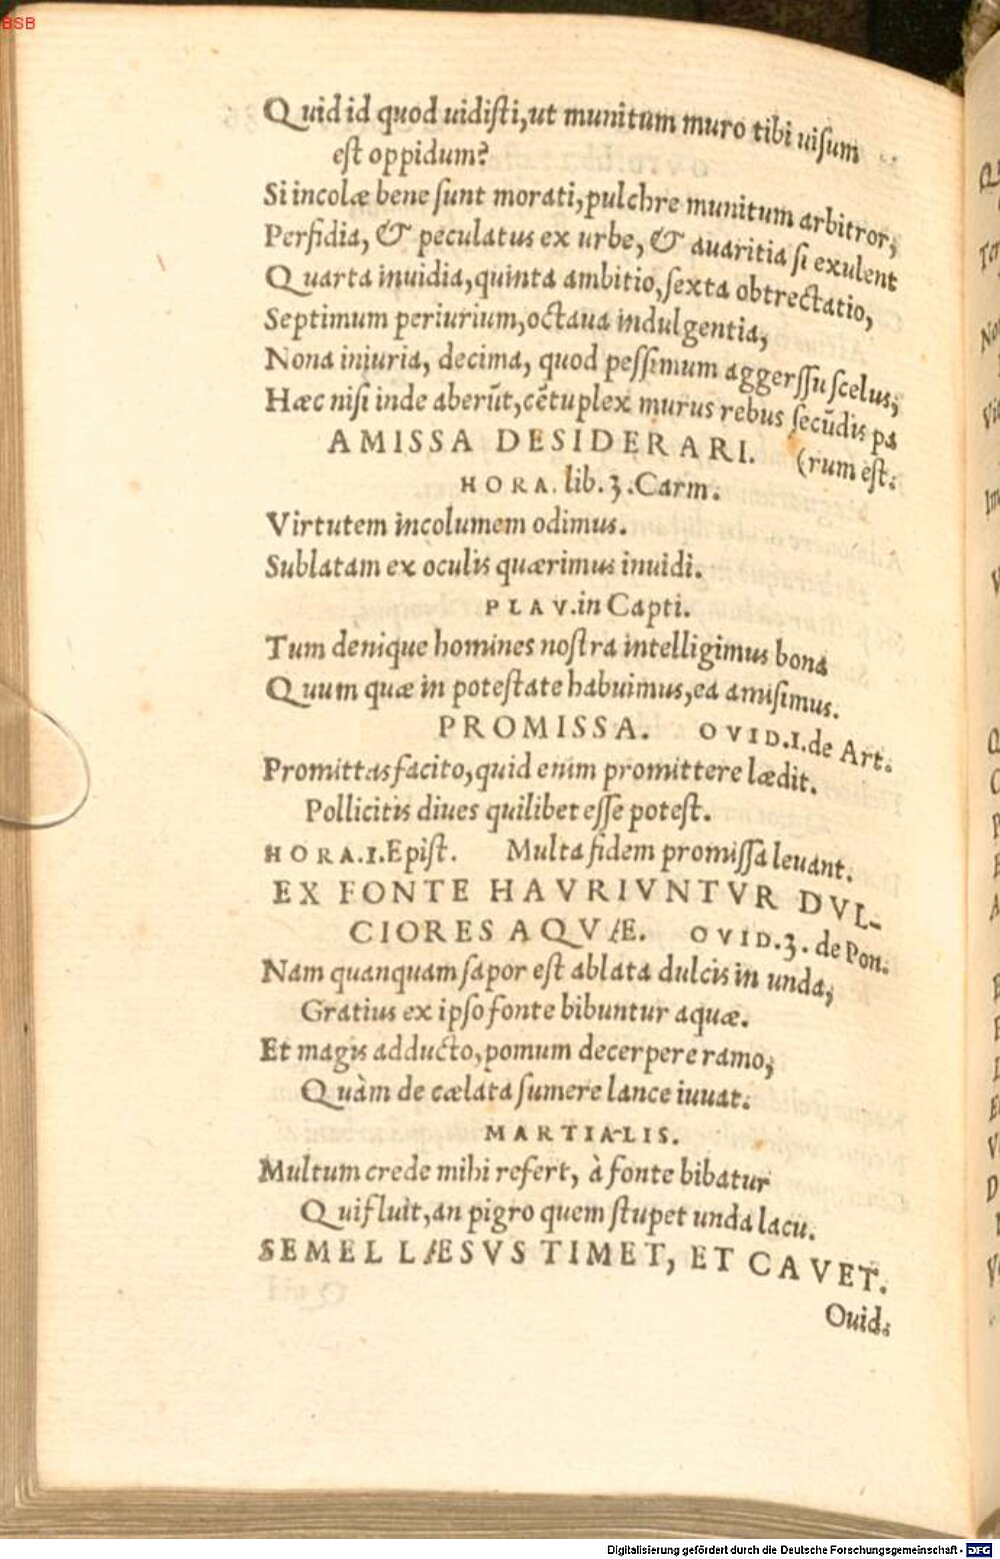 BSB
Quid id quod uidisti, ut munitum muro tibi uisum
est oppidum?
Si incolæ bene sunt morati, pulchre munitum arbitror,
Perfidia, & peculatus ex urbe, & auaritia si exulent
Quarta inuidia, quinta ambitio, sexta obtrectatio,
Septimum periurium, octaua indulgentia,
Nona iniuria, decima, quod pessimum aggerssu scelus,
Hæc nisi inde aberũt, cẽtuplex murus rebus secũdis pa
AMISSA DESIDERARI. (rum est.
HORA. lib. 3. Carm.
Virtutem incolumem odimus.
Sublatam ex oculis quærimus inuidi.
PLAV. in Capti.
Tum denique homines nostra intelligimus bona
Quum quæ in potestate habuimus, ea amisimus.
PROMISSA. OVID. 1. de Art.
Promittas facito, quid enim promittere lædit.
Pollicitis diues quilibet esse potest.
HORA. 1. Epist. Multa fidem promissa leuant.
EX FONTE HAVRIVNTVR DVL-
CIORES AQVÆ. OVID. 3. de Pon.
Nam quanquam sapor est ablata dulcis in unda,
Gratius ex ipso fonte bibuntur aquæ.
Et magis adducto, pomum decerpere ramo,
Quàm de cælata sumere lance iuuat.
MARTIALIS.
Multum crede mihi refert, à fonte bibatur
Qui fluit, an pigro quem stupet unda lacu.
SEMEL LÆSVS TIMET, ET CAVET.
Ouid.
Digitalisierung gefördert durch die Deutsche Forschungsgemeinschaft - DFG